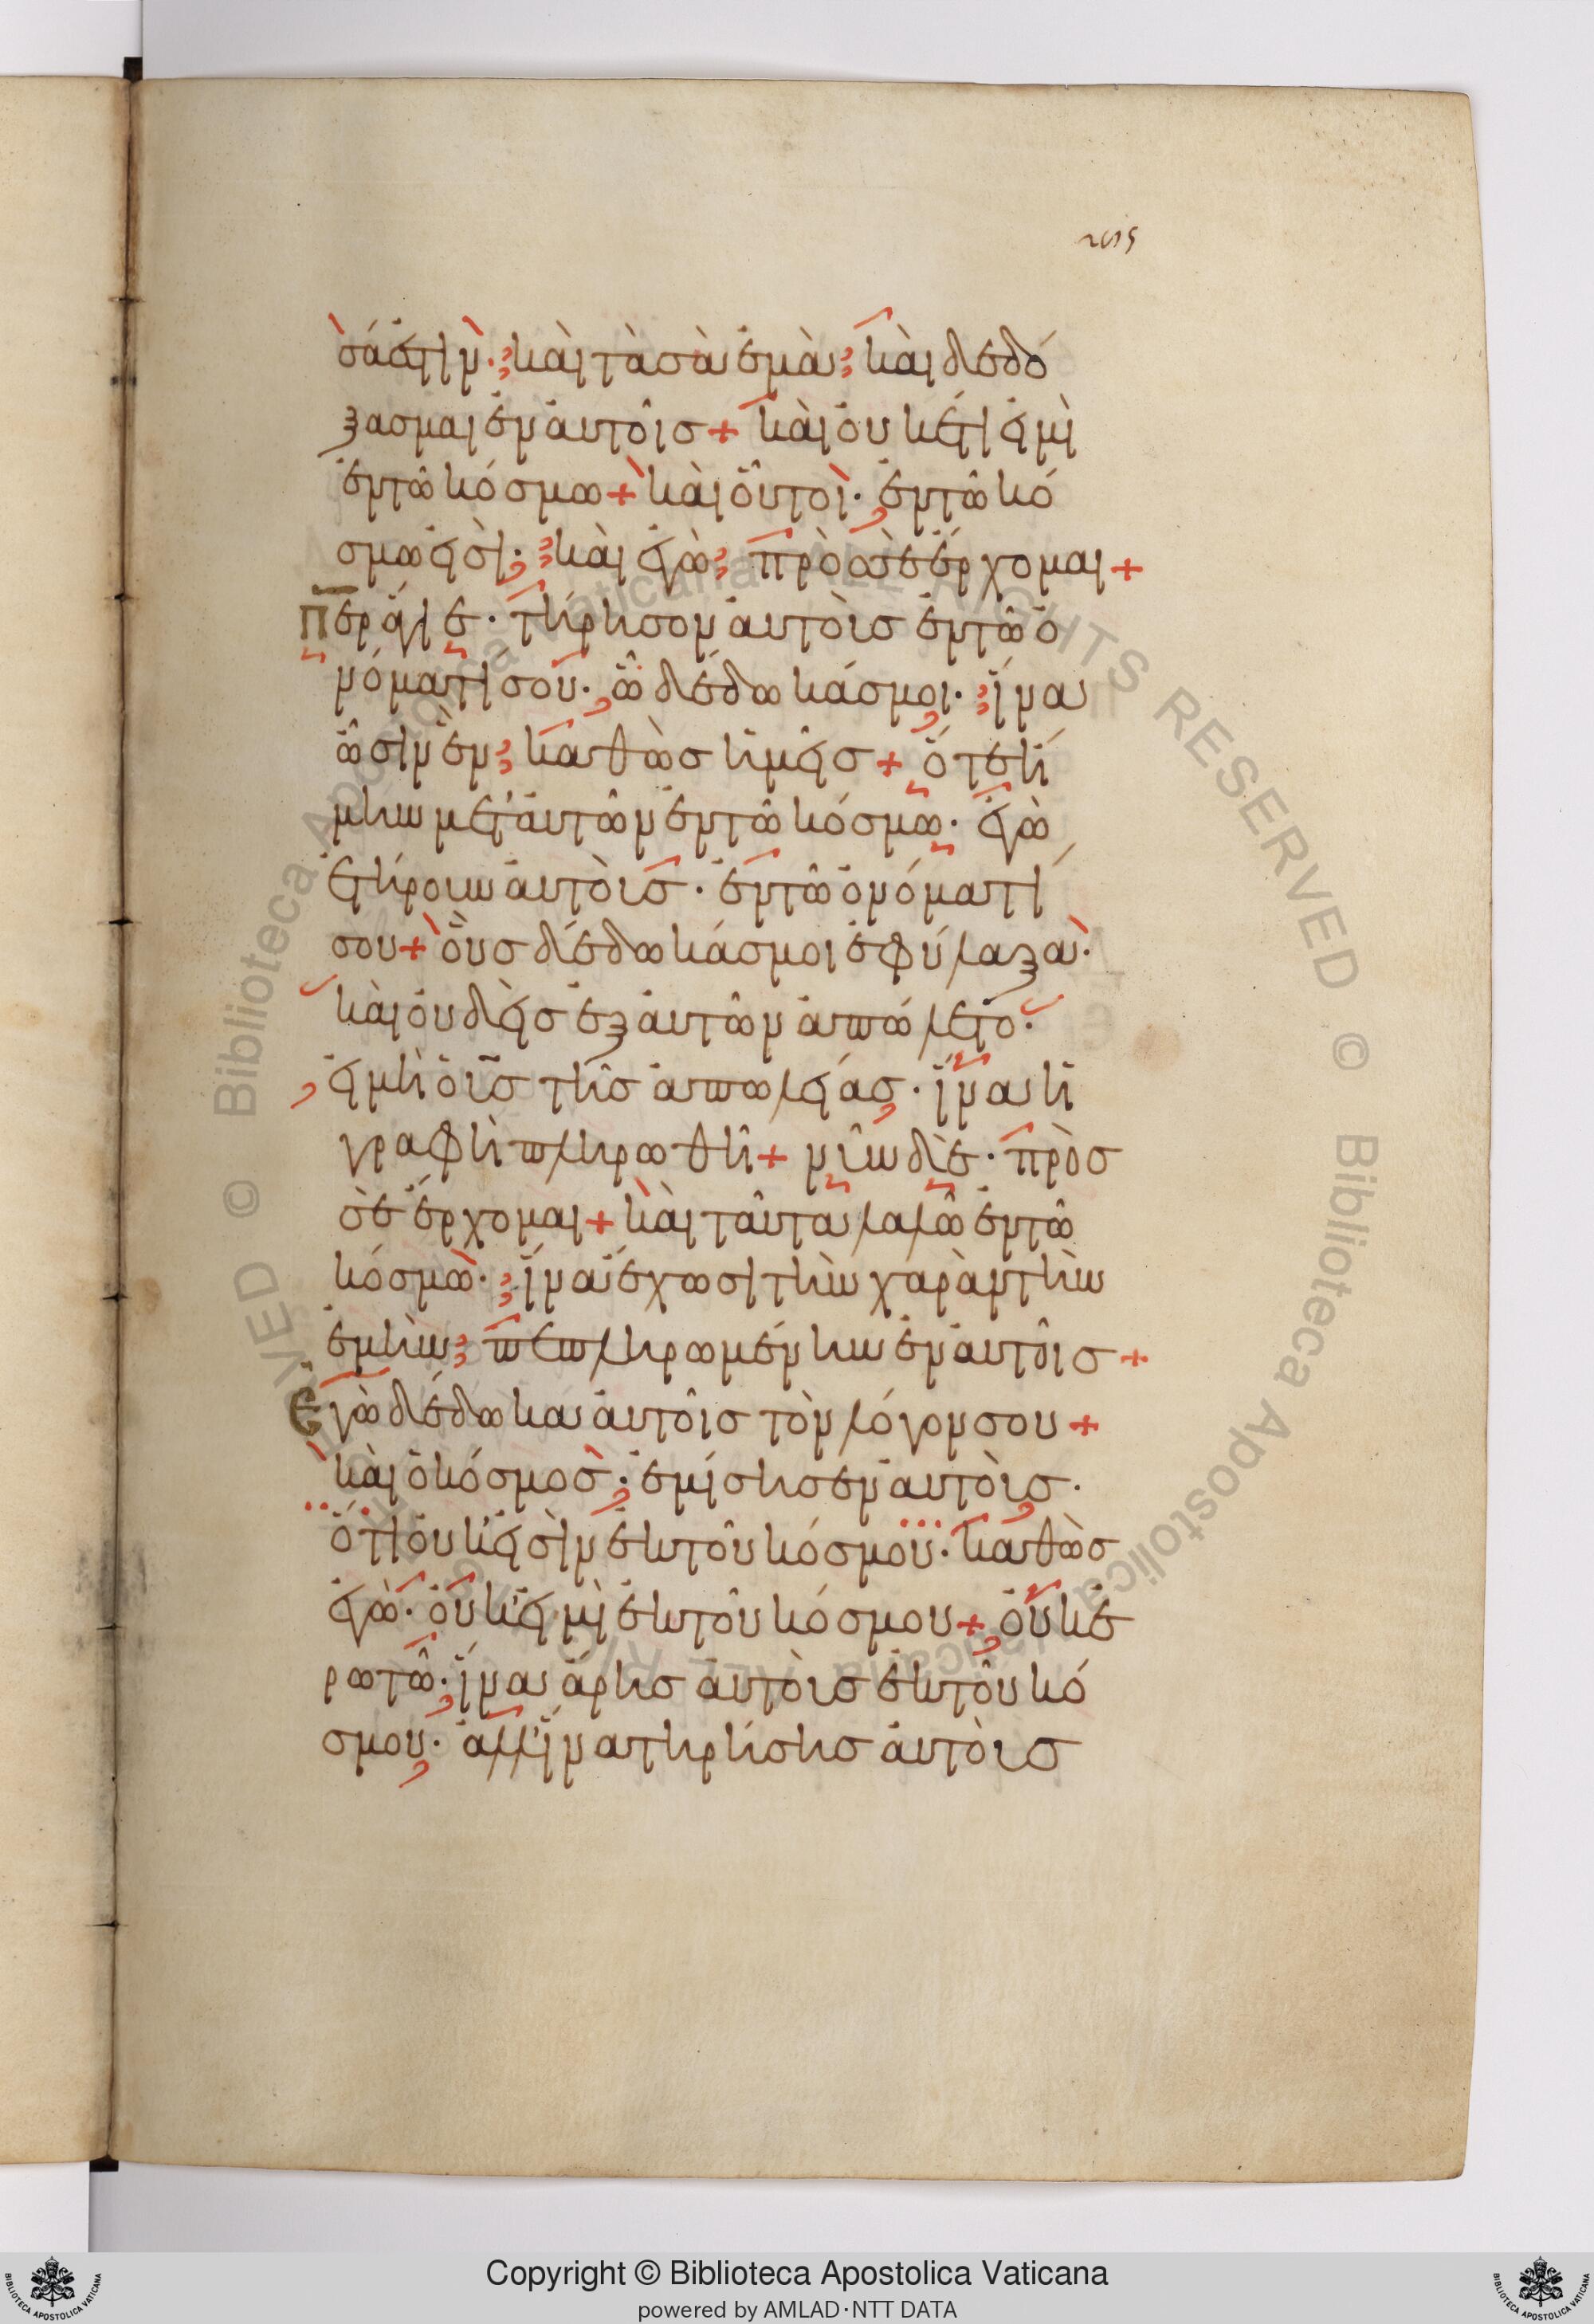 σά ἐστιν· καὶ τὰ σὰ ἐμὰ· καὶ δεδό
ξασμαι ἐν αὐτοῖς + καὶ οὐκ ἔτι εἰμὶ
ἐν τῶ κόσμω + καὶ οὗτοι· ἐν τῶ κό
σμω εἰσὶ· καὶ ἐγὼ πρὸς σὲ ἔρχομαι +
Περ ἅγιε· τήρησον αὐτοὺς ἐν τῶ ὀ
νόματί σου· ὧ δέδωκάς μοι· ἵνα
ὦσιν ἓν καθὼς ἡμεῖς + ὅτε ἤ
μην μετ' αὐτῶν ἐν τῶ κόσμω· ἐγὼ
ἐτήρουν αὐτοὺς· ἐν τῶ ὀνόματί
σου + οὓς δέδωκάς μοι ἐφύλαξα·
καὶ οὐδεὶς ἐξ αὐτῶν ἀπώλετο·
εἰ μὴ ὁ υς τῆς ἀπωλείας· ἵνα ἡ
γραφὴ πληρωθῆ + νῦν δὲ· πρὸς
σὲ ἔρχομαι + καὶ ταῦτα λαλῶ ἐν τῶ
κόσμω· ἵνα ἔχωσι τὴν χαρὰν τὴν
ἐμὴν πεπληρωμένην ἐν αὐτοῖς +
Ἐγὼ δέδωκα αὐτοῖς τὸν λόγον σου +
καὶ ὁ κόσμος· ἐμίσησεν αὐτοὺς·
ὅτι οὐκ εἰσὶν ἐκ τοῦ κόσμου· καθὼς
ἐγὼ· οὐκ εἰμὶ ἐκ τοῦ κόσμου + οὐκ ἐ
ρωτῶ· ἵνα ἄρης αὐτοὺς ἐκ τοῦ κό
σμου· ἀλλ' ἵνα τηρήσης αὐτοὺς
© Biblioteca Apostolica Vaticana ALL RIGHTS RESERVED © Biblioteca Apostolica Vaticana ALL RIGHTS RESERVED
Copyright © Biblioteca Apostolica Vaticana
powered by AMLAD·NTT DATA
BIBLIOTECA APOSTOLICA VATICANA
BIBLIOTECA APOSTOLICA VATICANA